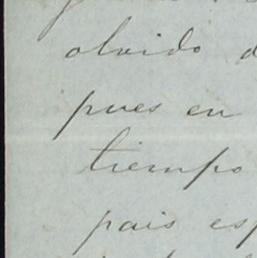 olvido d
pues en
tiempo
pais esp